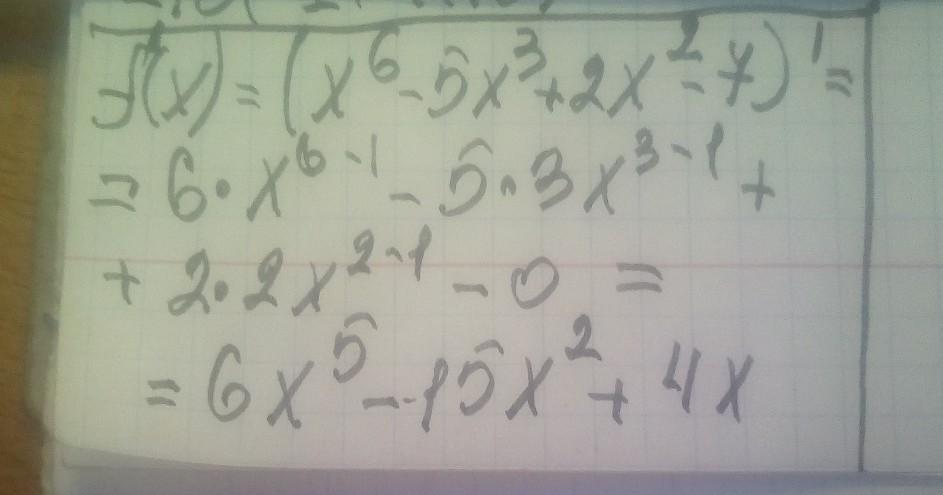 f'(x) = (x⁶ - 5x³ + 2x² - 7)' =
= 6 · x⁶⁻¹ - 5 · 3x³⁻¹ +
+ 2 · 2x²⁻¹ - 0 =
= 6x⁵ - 15x² + 4x